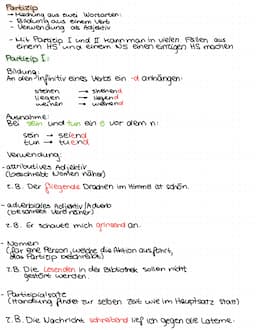 Partizip
- Mischung aus zwei Wortarten:
- Bildung aus einem Verb
- Verwendung als Adjektiv
- Mit Partizip I und II kann man in vielen Fällen aus
einem HS und einem NS einen einzigen HS machen
Partizip I:
Bildung:
An den Infinitiv eines Verbs ein -d anhängen:
stehen → stehend
liegen → liegend
weinen → weinend
Ausnahme:
Bei sein und tun ein e vor dem n:
sein → seiend
tun → tuend
Verwendung:
- attributives Adjektiv
(beschreibt Nomen näher)
z.B. Der fliegende Drachen im Himmel ist schön.
- adverbiales Adjektiv/Adverb
(beschreibt Verb näher)
z.B. Er schaute mich grinsend an.
- Nomen
(für eine Person, welche die Aktion ausführt,
das Partizip beschreibt)
z.B. Die Lesenden in der Bibliothek sollen nicht
gestört werden.
- Partizipialsätze
(Handlung findet zur selben Zeit wie im Hauptsatz statt)
z.B. Die Nachricht schreibend lief ich gegen die Laterne.